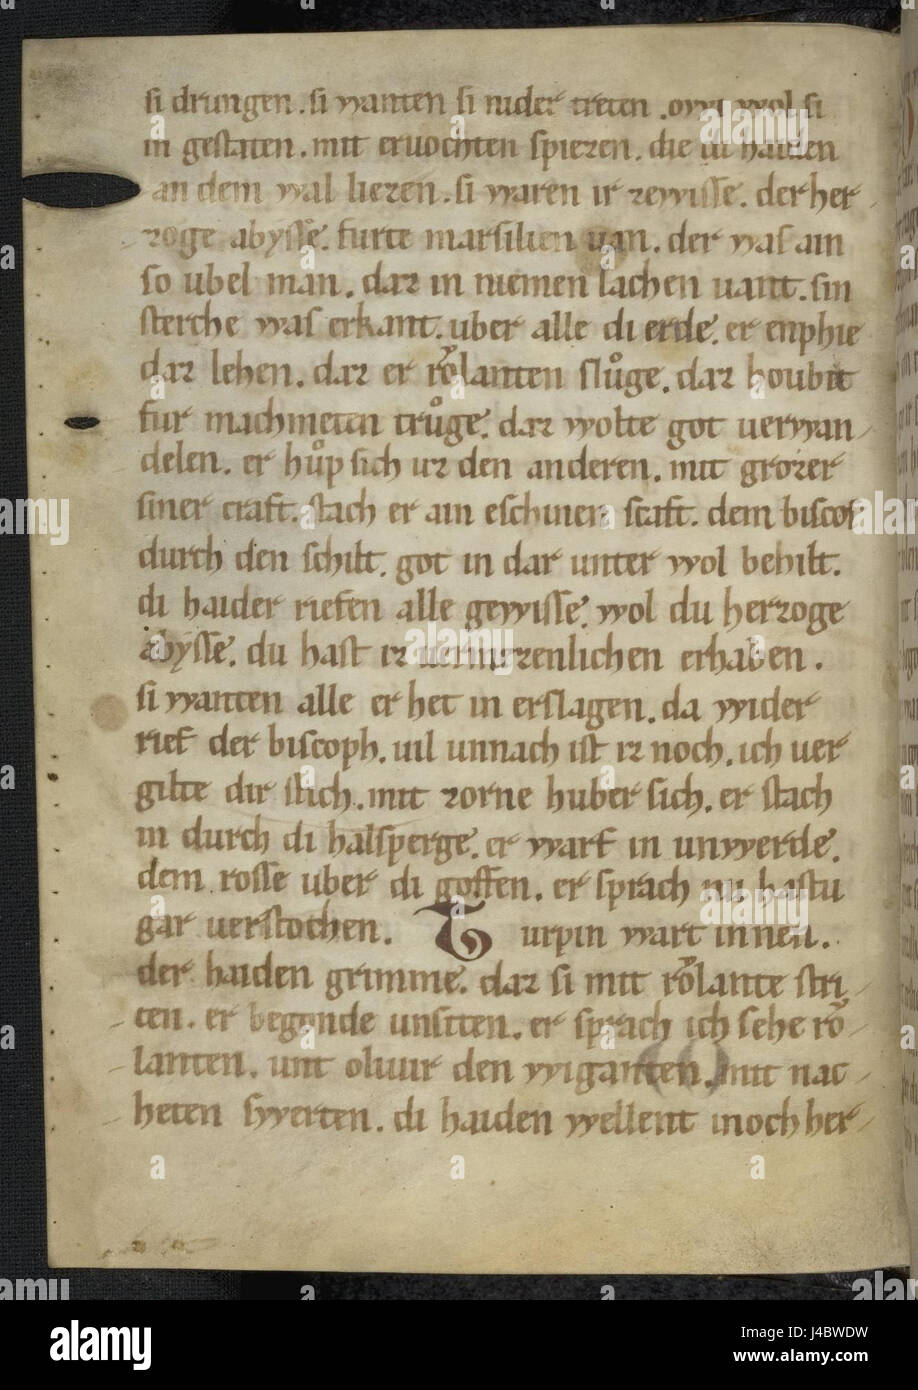 si drungen. si wanten si nider treten. owi wol si
in gestaten. mit eruochten spiezen. die di haiden
an dem wal liezen. si waren ir zewisse. der her
zoge abysse. furte marsilien uan. der was ain
so ubel man. daz in niemen lachen uant. sin
sterche was erkant. uber alle di erde. er enphie
daz lehen. daz er rͦolanten slůge. daz houbit
fur machmeten trůge. daz wolte got uerwan
delen. er hůp sich uz den anderen. mit grozer
siner craft. stach er ain eschinen scaft. dem biscof
durch den schilt. got in dar unter wol behilt.
di haiden riefen alle gewisse. wol du herzoge
abysse. du hast iz uernunzenlichen erhaben.
si wanten alle er het in erslagen. da wider
rief der biscoph. uil unnach ist iz noch. ich uer
gilte dir stich. mit zorne huber sich. er stach
in durch di halsperge. er warf in unwerde.
dem rosse uber di goffen. er sprach nu hastu
gar uerstochen. Turpin wart innen.
der haiden grimme. daz si mit rͦolante stri
ten. er begonde unsiten. er sprach ich sehe rͦo
lanten. unt oliuir den wiganten. mit nac
heten swerten. di haiden wellent inoch her
alamy
Image ID: J4BWDW
www.alamy.com